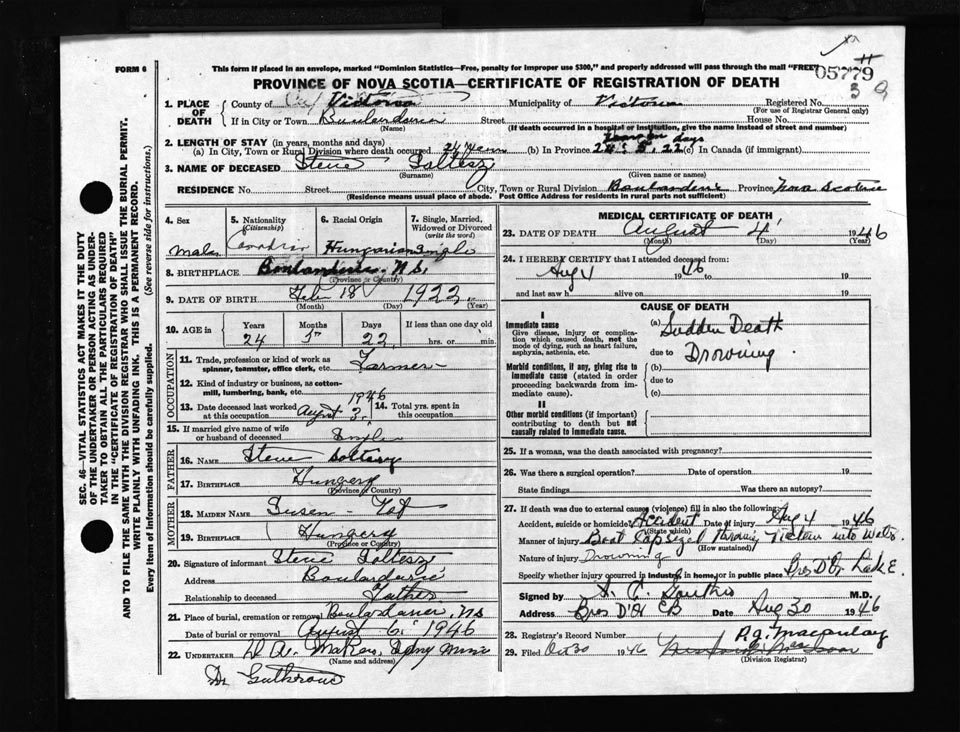 FORM 6
This form if placed in an envelope, marked "Dominion Statistics—Free, penalty for improper use $300," and properly addressed will pass through the mail "FREE"
05779
PROVINCE OF NOVA SCOTIA—CERTIFICATE OF REGISTRATION OF DEATH
SEC. 46—VITAL STATISTICS ACT MAKES IT THE DUTY
OF THE UNDERTAKER OR PERSON ACTING AS UNDER-
TAKER TO OBTAIN ALL THE PARTICULARS REQUIRED
IN THE "CERTIFICATE OF REGISTRATION OF DEATH"
AND TO FILE THE SAME WITH THE DIVISION REGISTRAR WHO SHALL ISSUE THE BURIAL PERMIT.
WRITE PLAINLY WITH UNFADING INK. THIS IS A PERMANENT RECORD.
Every item of information should be carefully supplied. (See reverse side for instructions.)
1. PLACE OF DEATH County of Victoria Municipality of Victoria Registered No.
(For use of Registrar General only)
If in City or Town Boulardarie Street House No.
(Name) (If death occurred in a hospital or institution, give the name instead of street and number)
2. LENGTH OF STAY (in years, months and days)
(a) In City, Town or Rural Division where death occurred 24 years (b) In Province 24 : 5 : 22 (c) In Canada (if immigrant)
3. NAME OF DECEASED Steve Soltesz
(Surname) (Given name or names)
RESIDENCE No. Street City, Town or Rural Division Boularderie Province Nova Scotia
(Residence means usual place of abode. Post Office Address for residents in rural parts not sufficient)
4. Sex Male
5. Nationality (Citizenship) Canadian
6. Racial Origin Hungarian
7. Single, Married, Widowed or Divorced (write the word) Single
8. BIRTHPLACE Boularderie, N.S.
(Province or Country)
9. DATE OF BIRTH Feb 18 1922
(Month) (Day) (Year)
10. AGE in Years Months Days If less than one day old
24 5 22 hrs. or min.
OCCUPATION
11. Trade, profession or kind of work as spinner, teamster, office clerk, etc. Farmer
12. Kind of industry or business, as cotton-mill, lumbering, bank, etc.
13. Date deceased last worked at this occupation August 3, 1946 14. Total yrs. spent in this occupation
15. If married give name of wife or husband of deceased Single
FATHER
16. NAME Steve Soltesz
17. BIRTHPLACE Hungery
(Province or Country)
MOTHER
18. MAIDEN NAME Susen - Tot
19. BIRTHPLACE Hungery
(Province or Country)
20. Signature of informant Steve Soltesz
Address Boularderie
Relationship to deceased Father
21. Place of burial, cremation or removal N.S.
Date of burial or removal August 6, 1946
22. UNDERTAKER Sydney Mines
(Name and address)
MEDICAL CERTIFICATE OF DEATH
23. DATE OF DEATH August 4 1946
(Month) (Day) (Year)
24. I HEREBY CERTIFY that I attended deceased from:
Aug 4 1946 to 19
and last saw h alive on 19
CAUSE OF DEATH
I
Immediate cause
Give disease, injury or complication which caused death, not the mode of dying, such as heart failure, asphyxia, asthenia, etc.
(a) Sudden Death
due to Drowning.
Morbid conditions, if any, giving rise to immediate cause (stated in order proceeding backwards from immediate cause).
(b)
due to
(c)
II
Other morbid conditions (if important) contributing to death but not causally related to immediate cause.
25. If a woman, was the death associated with pregnancy?
26. Was there a surgical operation? Date of operation 19
State findings Was there an autopsy?
27. If death was due to external causes (violence) fill in also the following:
Accident, suicide or homicide? Accident Date of injury Aug 4 1946
(State which)
Manner of injury Boat Capsized throwing Victim into Water
(How sustained)
Nature of injury Drowning
Specify whether injury occurred in industry, in home, or in public place Bras D'Or Lake
Signed by M.D.
Address Bras D'Or CB Date Aug 30 1946
28. Registrar's Record Number P.J. Macaulay
29. Filed Oct 30 1946
(Division Registrar)